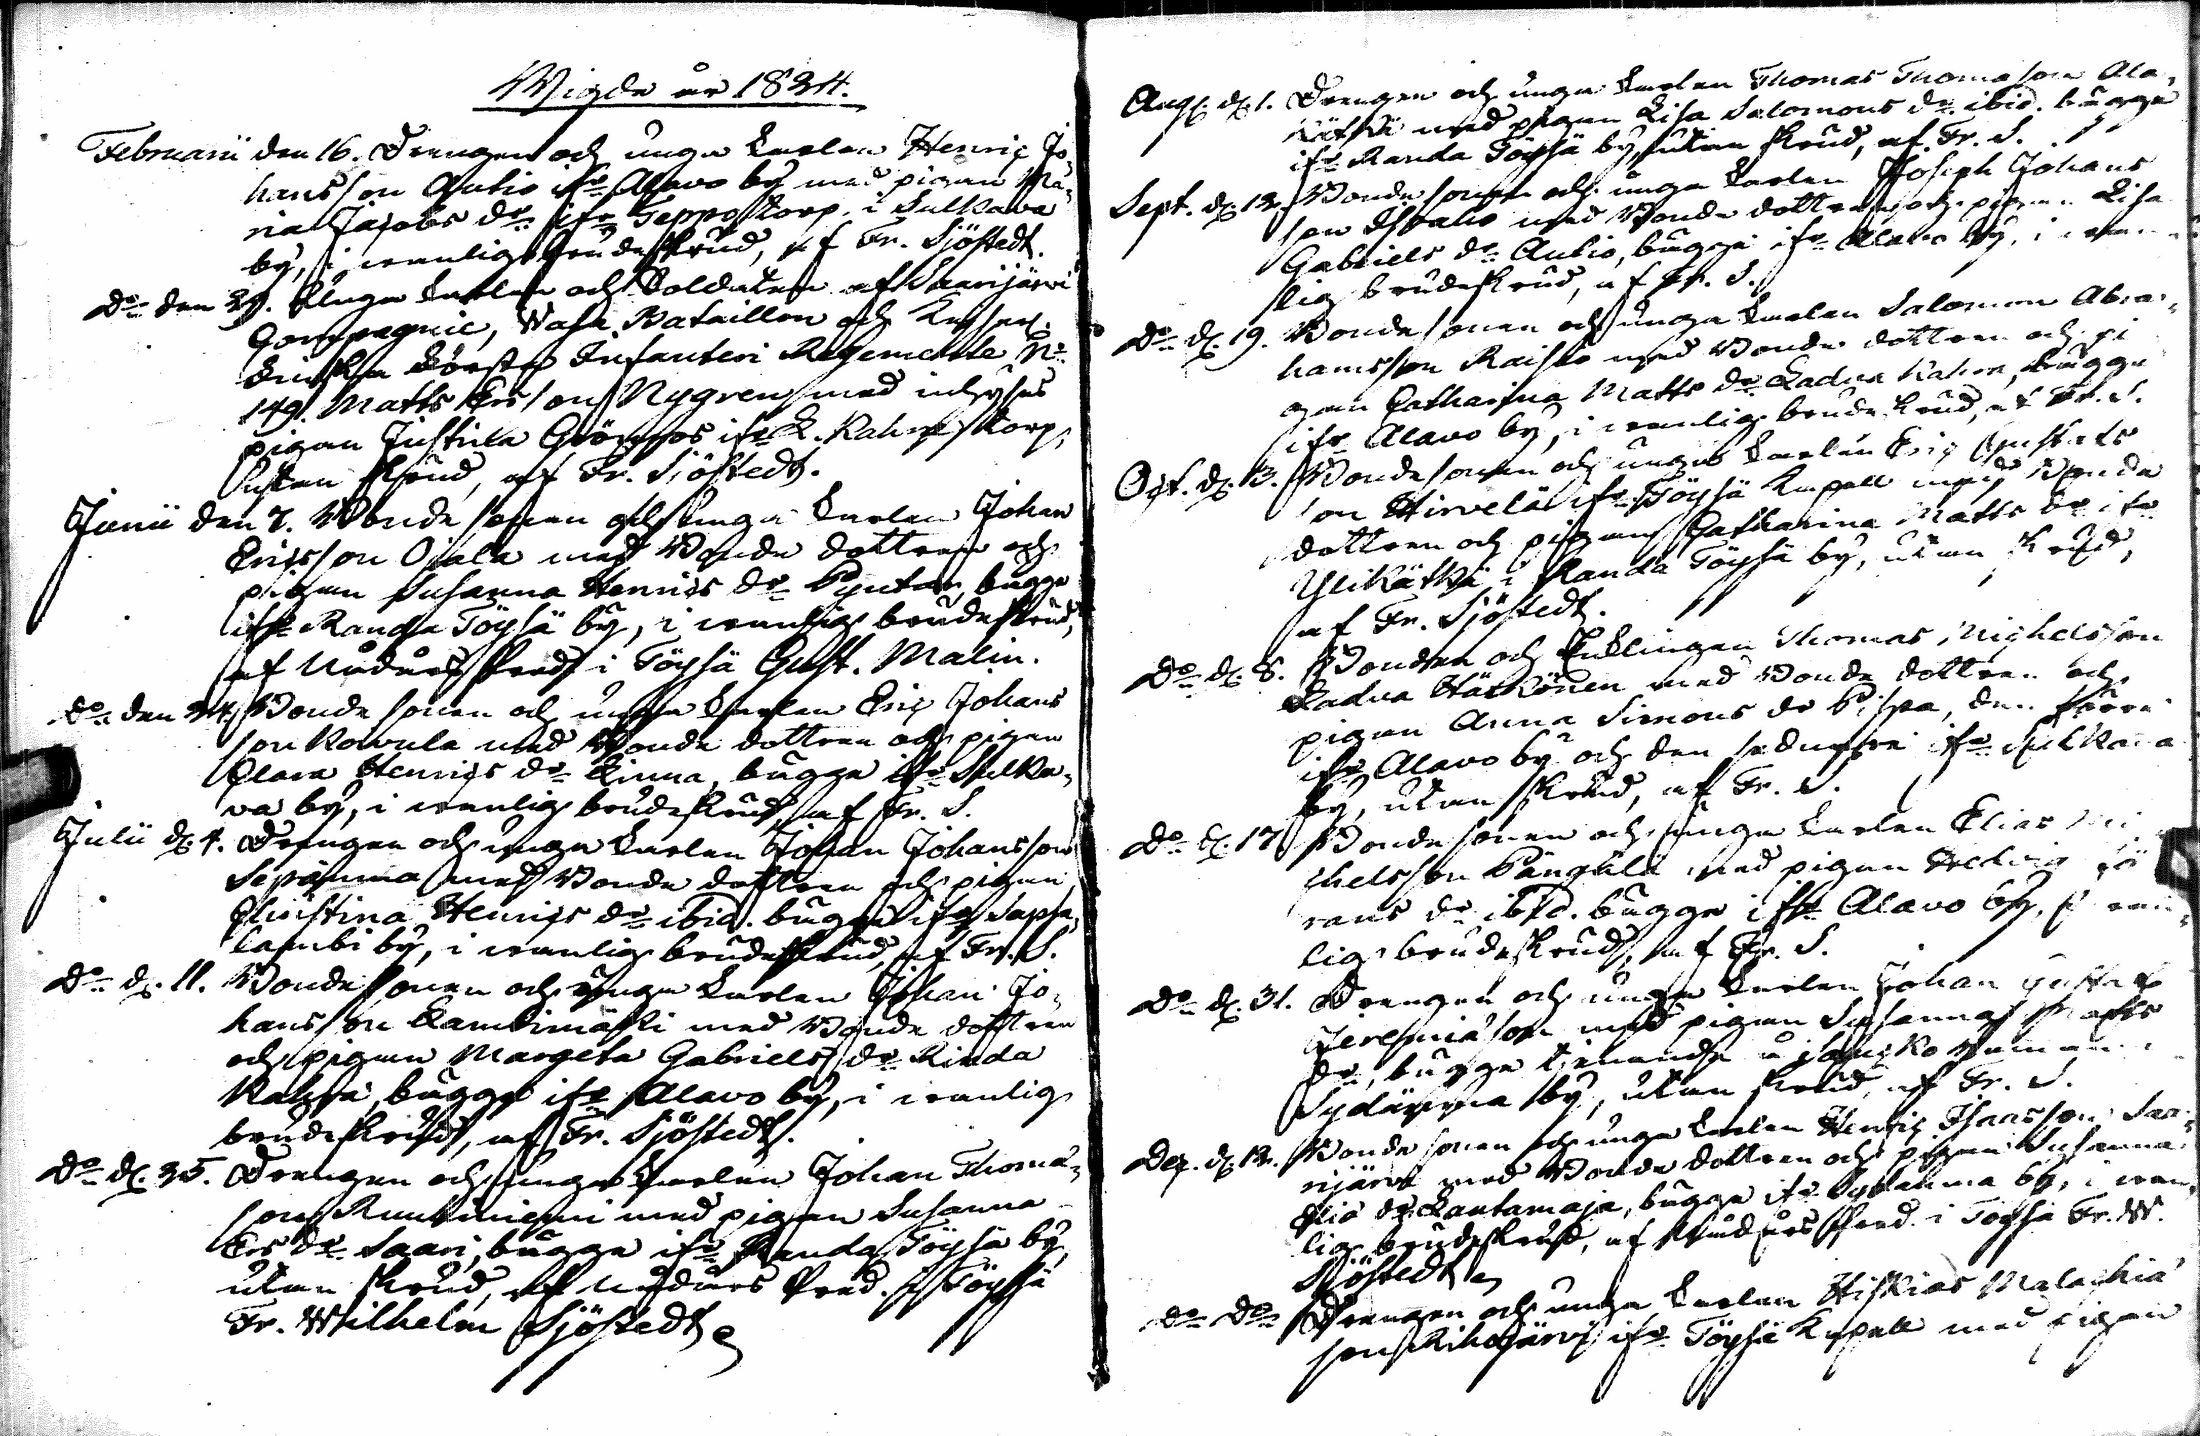 Wigde år 1824.
Februarii den 16. Drengen och unga Karlen Henric Jo-
hansson Autio ifr. Alavo by med pigan Ma-
ria Jacobs dr. ifr. Seppo torp i Sulkava
by, i wanlig brudeskrud, af Fr. Sjöstedt.
do den 29. Unga Karlen och Soldaten af Saarijärvi
Compagnie, Wasa Bataillon och
Finska Första Infanteri Regemente No
149. Matts Ersson Nygren med inhyses
pigan Justina Grönroos ifr. torp,
utan skrud, af Fr. Sjöstedt.
Junii den 7. Bonde sonen och unga Karlen Johan
Ericsson Ojala med Bonde dottren och
pigan Susanna Henrics dr. Pyntär, bägge
ifr. Randa Töysä by, i wanlig brudeskrud,
af Nådårs Pred. i Töysä Gust. Malin.
do den 24. Bonde sonen och unga Karlen Eric Johans
son Kowula med Bonde dottren och pigan
Clara Henrics dr. Linna, bägge ifr. Sulka-
va by, i wanlig brudeskrud, af Fr. S.
Julii d. 4. Drengen och unga Karlen Johan Johansson
Sepänmaa med Bonde dottren och pigan
Christina Henrics dr. ibid. bägge ifr. Sapsa-
lambi by, i wanlig brudeskrud, af Fr. S.
do d. 11. Bonde sonen och unga Karlen Johan Jo-
hansson Lambimäki med Bonde dottren
och pigan Margeta Gabriels dr. Rinda
Kahra, bägge ifr. Alavo by, i wanlig
brudeskrud, af Fr. Sjöstedt.
do d. 25. Drengen och unga Karlen Johan Thomä-
son Ruuhiniemi med pigan Susanna
Ers dr. Saari, bägge ifr. Randa Töysä by,
utan skrud, af Nådårs Pred. i Töysä
Fr. Wilhelm Sjöstedt
Aug. d. 1. Drengen och unga Karlen Thomas Thomasson Ala-
kätkä med pigan Lisa Salomons dr. ibid. bägge
ifr. Randa Töysä by, utan skrud, af Fr. S.
Sept. d. 12. Bonde sonen och unga Karlen Joseph Johans
son Isoaho med Bonde dottren och pigan Lisa
Gabriels dr. Autio, bägge ifr. Alavo by, i wan-
lig brudeskrud, af Fr. S.
do d. 19. Bonde sonen och unga Karlen Salomon Abra-
hamsson Raisko med Bonde dottren och pi
gan Catharina Matts dr. Ladva Kahra, bägge
ifr. Alavo by, i wanlig brudeskrud, af Fr. S.
Oct. d. 3. Bonde sonen och unga Karlen Eric Gustafs
son Hirvelä ifr. Töysä Kapell med Bonde
dottren och pigan Catharina Matts dr. ifr.
Ylikätkä i Randa Töysä by, utan skrud,
af Fr. Sjöstedt.
do d. 8. Bonden och Enklingen Thomas Michelsson
Ladva Härkönen med Bonde dottren och
pigan Anna Simons dr. Pispa, den förre
ifr. Alavo by och den sednare ifr. Sulkava
by, utan skrud, af Fr. S.
do d. 17. Bonde sonen och unga Karlen Elias Mi
chelsson Pängälä med pigan Hedvig Jö
rans dr. ibid. bägge ifr. Alavo by, i wan-
lig brudeskrud, af Fr. S.
do d. 31. Drengen och unga Karlen Johan Gustaf
Jeremiäson med pigan Susanna Matts
dr., bägge tjenande å
Sydänmaa by, utan skrud, af Fr. S.
Dec. d. 12. Bonde sonen och unga Karlen Henric Isaacsson Saa-
rijärvi med Bonde dottren och pigan Susanna
Eliä dr. Rantamaja, bägge ifr. Sydänmaa by, i wan-
lig brudeskrud, af Nådårs Pred. i Töysä Fr. W.
Sjöstedt
do do Drengen och unga Karlen Hiskias Malachiä
son Rihojärvi ifr. Töysä Kapell med pigan